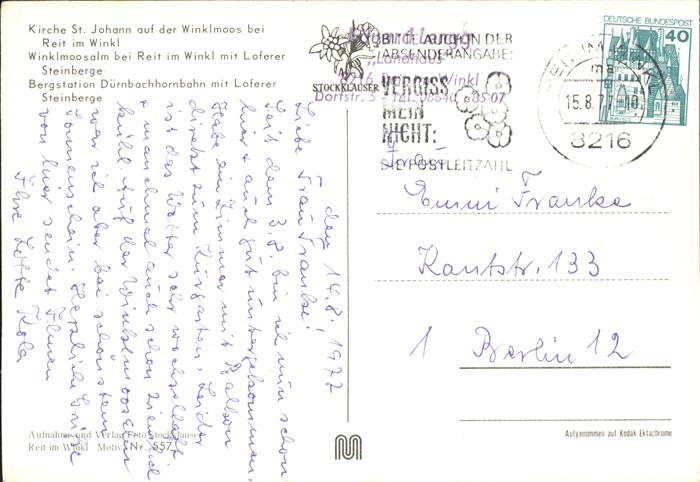 Kirche St. Johann auf der Winklmoos bei
Reit im Winkl
Winklmoosalm bei Reit im Winkl mit Loferer
Steinberge
Bergstation Dürnbachhornbahn mit Loferer
Steinberge
STOCKKLAUSER
BITTE AUCH IN DER
ABSENDERANGABE:
VERGISS
MEIN
NICHT:
DIE POSTLEITZAHL
"Landhaus
Dorfstr. 5 - Tel. 08640
REIT IM WINKL
15.8.77-10
8216
DEUTSCHE BUNDESPOST
40
den 14.8.1977
Liebe Frau Franke!
Seit dem 3.8. bin ich nun schon
hier & auch gut untergekommen.
Habe ein Zimmer mit Balkon
direkt zum Kurgarten. Leider
ist das Wetter sehr wechselhaft
& manchmal auch schon ziemlich
kühl. Auf der Winklmoosalm
war ich aber bei schönstem
Sonnenschein. Herzliche Grüße
von hier sendet Ihnen
Ihre Lotte
Frau
Emmi Franke
Kantstr. 133
1 Berlin 12
Aufnahme und Verlag Foto Stockklauser
Reit im Winkl Motiv Nr. 557
Aufgenommen auf Kodak Ektachrome